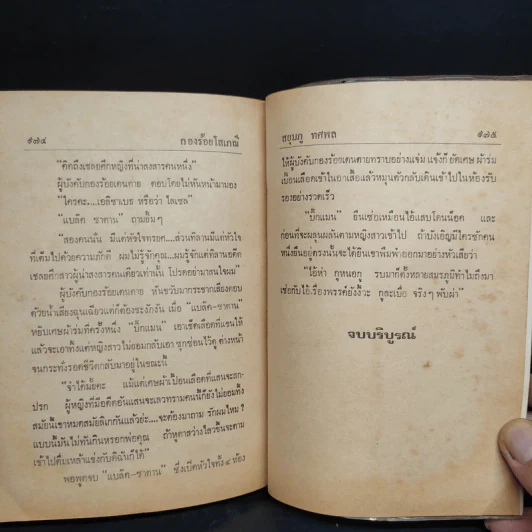 ๑๗๔ กองร้อยโสเภณี
"คิดถึงเชลยศึกหญิงที่น่าสงสารคนหนึ่ง"
ผู้บังคับกองร้อยเดนตาย ตอบโดยไม่หันหน้ามามอง
"ใครคะ...เอลิซาเบธ หรือว่า ไลเซล"
"แบล๊ค ซาตาน" ถามยิ้มๆ
"สองคนนั้น มีแต่หัวใจทรยศ...ส่วนที่ลานมีแต่หัวใจ
ที่เต็มไปด้วยความภักดี ผมไม่รู้จักคุณ...ผมรู้จักแต่ลานอดีต
เชลยศึกสาวผู้น่าสงสารคนเดียวเท่านั้น โปรดอย่ามาสนใจผม"
ผู้บังคับกองร้อยเดนตาย หันขวับมากระชากเสียงตอบ
ด้วยน้ำเสียงฉุนเฉียวแต่ก็ต้องชะงักงัน เมื่อ "แบล๊ค-ซาตาน"
หยิบเศษผ้าร่มที่ครั้งหนึ่ง "บิ๊กแมน" เอาเช็ดเลือดที่แขนให้
แล้วจะเอาทิ้งแต่หญิงสาวไม่ยอมกลับเอา ซุกซ่อนไว้ดู ต่างหน้า
จนกระทั่งรอดชีวิตกลับมาอยู่ในขณะนี้
"จำได้มั้ยคะ แม้แต่เศษผ้าเปื้อนเลือดที่แสนจะสก-
ปรก ผู้หญิงที่มีอดีตอันแสนจะเลวทรามคนนี้ก็ยังไม่ยอมทิ้ง
สมัยนี้เขาหมดสมัยเลิกกันแล้วย่ะ....จะต้องมาถาม รักผมไหม?
แบบนี้มันไม่ทันกินหรอกพ่อคุณ ถ้าหูตาสว่างไสวขึ้นจะตาม
เข้าไปดื่มเหล้าแข่งกับดิฉันก็ได้"
พอพูดจบ "แบล๊ค-ซาตาน" ซึ่งเปิดหัวใจทั้ง ๔ ห้อง
สยุมภู ทศพล ๑๗๕
ให้ผู้บังคับกองร้อยเดนตายทราบอย่างแจ่ม แจ้งก็ ยัดเศษ ผ้าร่ม
เปื้อนเลือดเข้าในอกเสื้อแล้วหมุนตัวกลับเดินเข้าไปในห้องรับ
รองอย่างรวดเร็ว
"บิ๊กแมน" ยืนเซ่อเหมือนไอ้แสบโดนน็อค และ
ก่อนที่จะผลุนผลันตามหญิงสาวเข้าไป ถ้าบังเอิญมีใครซักคน
หนึ่งยืนอยู่ตรงนั้นจะได้ยินเขาพึมพำออกมาอย่างหัวเสียว่า
"ไอ้ห่า กูหนอกู รบมาก็ตั้งหลายสมรภูมิทำไมถึงมา
เซ่อกับไอ้เรื่องพรรค์ยังงี้วะ กูละเบื่อ จริงๆ พับผ่า"
จบบริบูรณ์